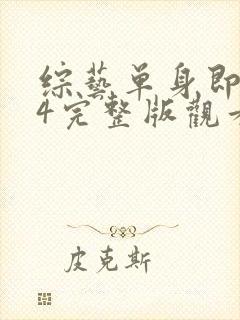 综藝单身即
4完整版觀
皮克斯